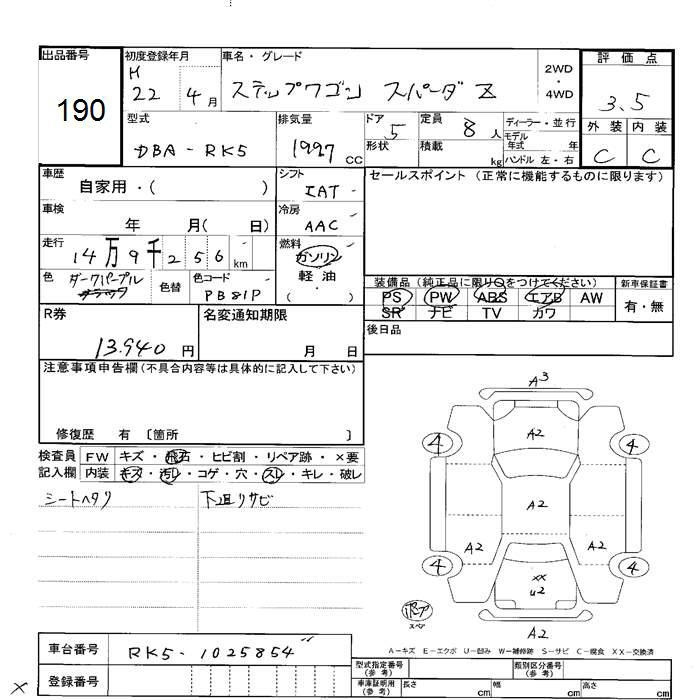 出品番号 初度登録年月 車名・グレード 評価点
190 H 22 4月 ステップワゴン スパーダ Z 2WD・4WD 3.5
外装 内装
C C
型式 排気量 ドア 5 定員 8人 ディーラー・並行
DBA-RK5 1997cc 形状 積載 kg モデル年式 年
ハンドル 左・右
車歴 自家用・( ) シフト IAT セールスポイント (正常に機能するものに限ります)
車検 年 月( 日) 冷房 AAC
走行 14万9千256km 燃料 ガソリン
軽油
( )
色 ダークパープル 色替 色コード PB81P
装備品 (純正品に限り○をつけてください) 新車保証書
PS PW ABS エアB AW 有・無
SR ナビ TV カワ
R券 名変通知期限 後日品
13.940円 月 日
注意事項申告欄 (不具合内容等は具体的に記入して下さい)
修復歴 有 〔箇所 〕
検査員 FW キズ・飛石・ヒビ割・リペア跡・×要
記入欄 内装 キズ・汚レ・コゲ・穴・スレ・キレ・破レ
シートヘタリ 下廻リサビ
A3
4 A2 4
A2
A2 A2
4 4
XX
U2
スペア
A2
A−キズ E−エクボ U−凹み W−補修跡 S−サビ C−腐食 XX−交換済
車台番号 RK5-1025854
登録番号
型式指定番号 (参考) 類別区分番号 (参考)
車庫証明用 (参考) 長さ cm 幅 cm 高さ cm
×